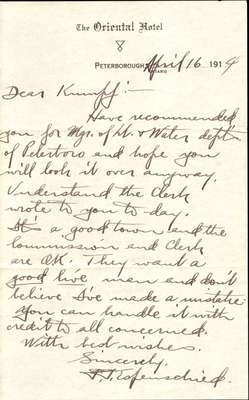 The Oriental Hotel
8
Peterborough, April 16 1914
Ontario
Dear Kumpf:—
Have recommended
you for Mgr. of Lt. & Water dept
of Peterboro and hope you
will look it over anyway.
Understand the Clerk
wrote to you to-day.
It's a good town and the
Commission and Clerk
are OK. They want a
good live man and don't
believe I've made a mistake
you can handle it with
credit to all concerned.
With best wishes.
Sincerely.